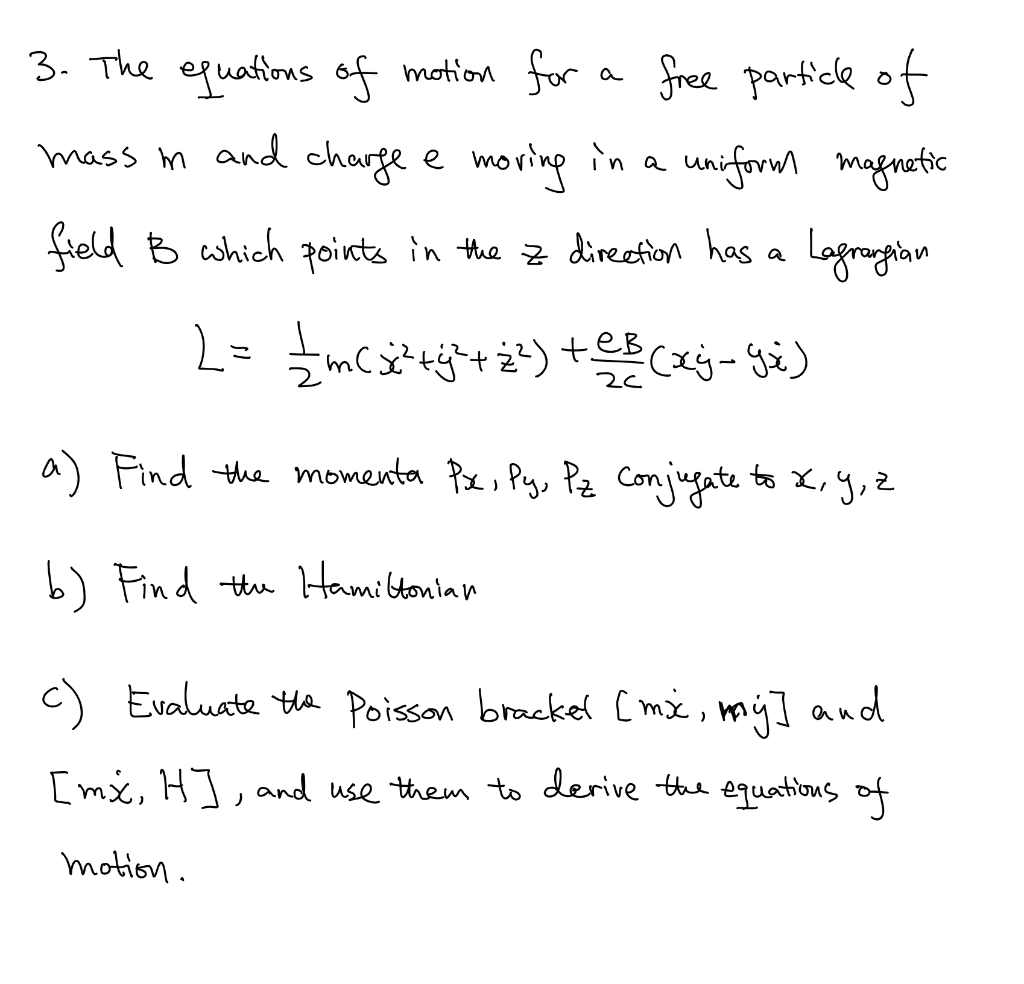 3. The equations of motion for a free particle of
mass m and charge e moving in a uniform magnetic
field B which points in the z direction has a Lagrangian
L = 1/2 m(ẋ²+ẏ²+ż²) + eB/2c (xẏ - yẋ)
a) Find the momenta Px, Py, Pz conjugate to x, y, z
b) Find the Hamiltonian
c) Evaluate the Poisson bracket [mẋ, mẏ] and
[mẋ, H], and use them to derive the equations of
motion.